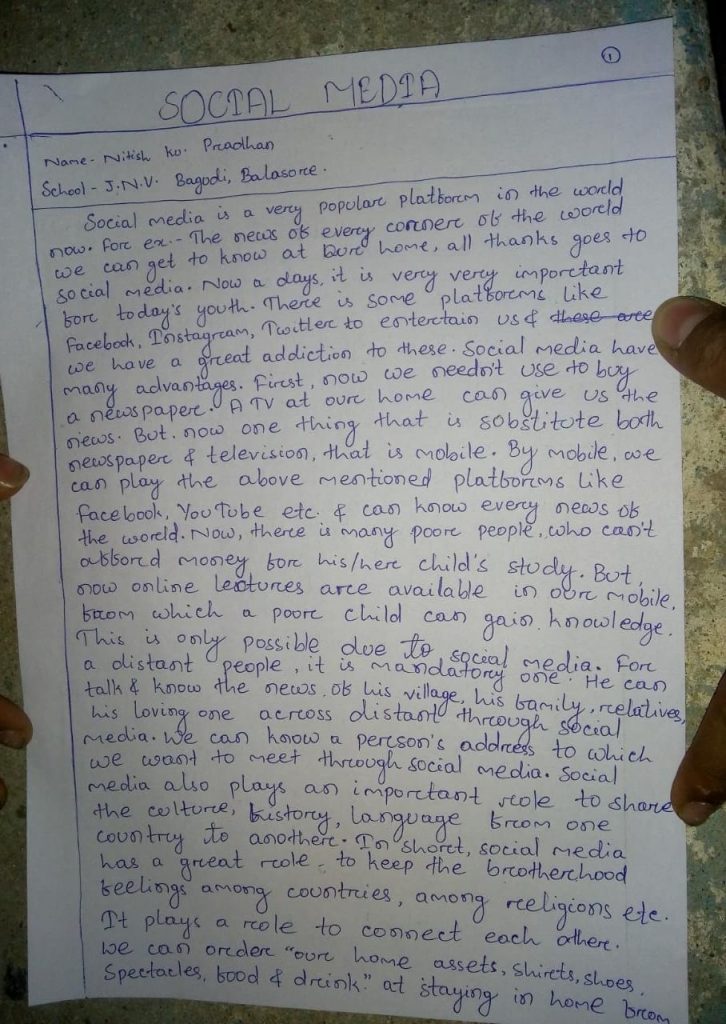 1
SOCIAL MEDIA
Name- Nitish Ku. Pradhan
School - J.N.V. Bagudi, Balasore.
Social media is a very popular platform in the world
now. For ex.- The news of every corner of the world
we can get to know at our home, all thanks goes to
social media. Now a days, it is very very important
for today's youth. There is some platforms like
Facebook, Instagram, Twitter to entertain us & these are
we have a great addiction to these. Social media have
many advantages. First, now we needn't use to buy
a newspaper. A TV at our home can give us the
news. But now one thing that is sobstitute both
newspaper & television, that is mobile. By mobile, we
can play the above mentioned platforms like
Facebook, YouTube etc. & can know every news of
the world. Now, there is many poor people, who can't
afford money for his/her child's study. But,
now online lectures are available in our mobile,
from which a poor child can gain knowledge.
This is only possible due to social media. For
a distant people, it is mandatory one. He can
talk & know the news of his village, his family, relatives,
his loving one across distant through social
media. We can know a person's address to which
we want to meet through social media. Social
media also plays an important role to share
the culture, history, language from one
country to another. In short, social media
has a great role to keep the brotherhood
feelings among countries, among religions etc.
It plays a role to connect each other.
We can order "our home assets, shirts, shoes,
spectacles, food & drink" at staying in home from